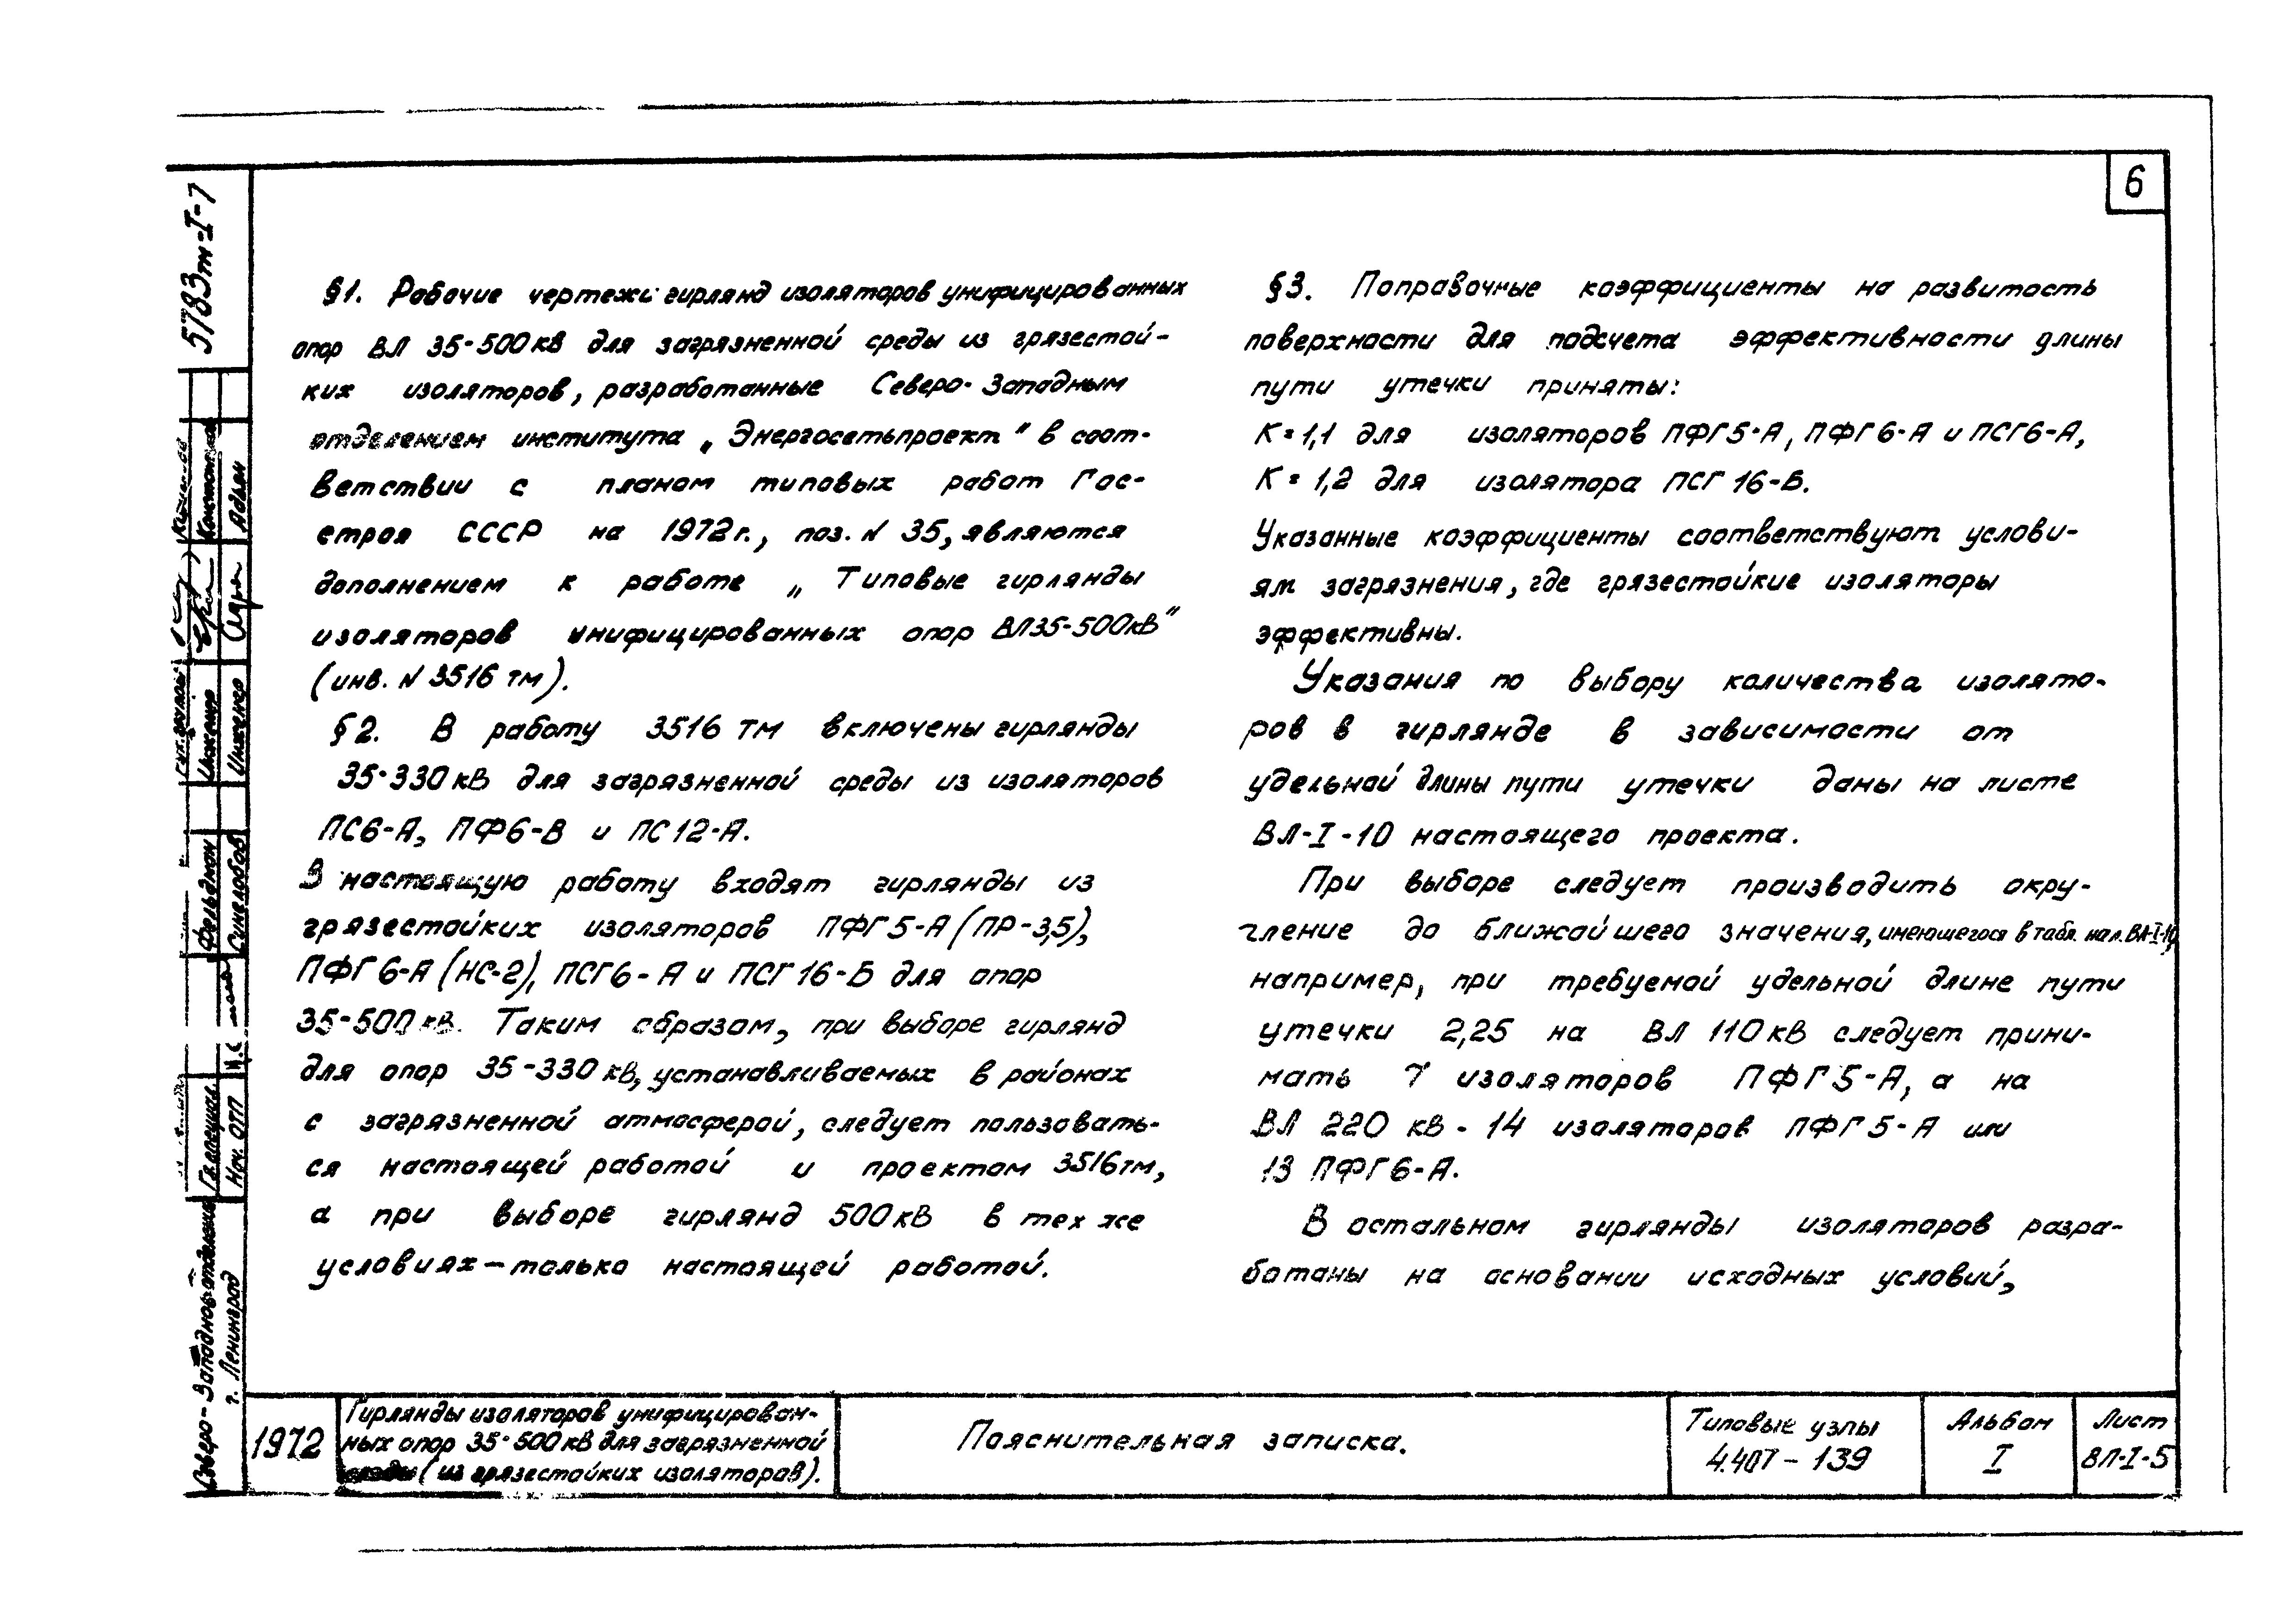 6
§1. Рабочие чертежи гирлянд изоляторов унифицированных
опор ВЛ 35-500 кВ для загрязненной среды из грязестой-
ких изоляторов, разработанные Северо-Западным
отделением института „Энергосетьпроект" в соот-
ветствии с планом типовых работ Гос-
строя СССР на 1972 г., поз. N 35, являются
дополнением к работе „Типовые гирлянды
изоляторов унифицированных опор ВЛ35-500кВ"
(инв. N 3516 тм).
§2. В работу 3516 тм включены гирлянды
35-330 кВ для загрязненной среды из изоляторов
ПС6-А, ПФ6-В и ПС12-А.
В настоящую работу входят гирлянды из
грязестойких изоляторов ПФГ5-А (ПР-3,5),
ПФГ6-А (НС-2), ПСГ6-А и ПСГ16-Б для опор
35-500 кВ. Таким образом, при выборе гирлянд
для опор 35-330 кВ, устанавливаемых в районах
с загрязненной атмосферой, следует пользовать-
ся настоящей работой и проектом 3516тм,
а при выборе гирлянд 500 кВ в тех же
условиях - только настоящей работой.
§3. Поправочные коэффициенты на развитость
поверхности для подсчета эффективности длины
пути утечки приняты:
К=1,1 для изоляторов ПФГ5-А, ПФГ6-А и ПСГ6-А,
К=1,2 для изолятора ПСГ16-Б.
Указанные коэффициенты соответствуют услови-
ям загрязнения, где грязестойкие изоляторы
эффективны.
Указания по выбору количества изолято-
ров в гирлянде в зависимости от
удельной длины пути утечки даны на листе
ВЛ-I-10 настоящего проекта.
При выборе следует производить окру-
гление до ближайшего значения, имеющегося в табл. на л. ВЛ-I-10,
например, при требуемой удельной длине пути
утечки 2,25 на ВЛ 110 кВ следует прини-
мать 7 изоляторов ПФГ5-А, а на
ВЛ 220 кВ - 14 изоляторов ПФГ5-А или
13 ПФГ6-А.
В остальном гирлянды изоляторов разра-
ботаны на основании исходных условий,
5783тм-I-7
Инженер
Инженер Адлен
Фельдман
Синелобов
Гл. специал.
Нач. ОТП
Северо-Западное отделение
г. Ленинград
1972
Гирлянды изоляторов унифицирован-
ных опор 35-500 кВ для загрязненной
среды (из грязестойких изоляторов).
Пояснительная записка.
Типовые узлы
4.407-139
Альбом
I
Лист
ВЛ-I-5